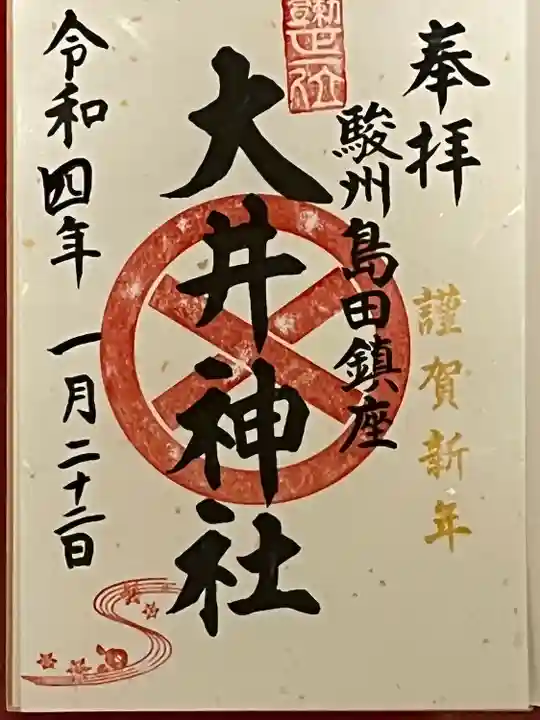 奉拝
謹賀新年
駿州島田鎮座
大井神社
令和四年 一月二十二日